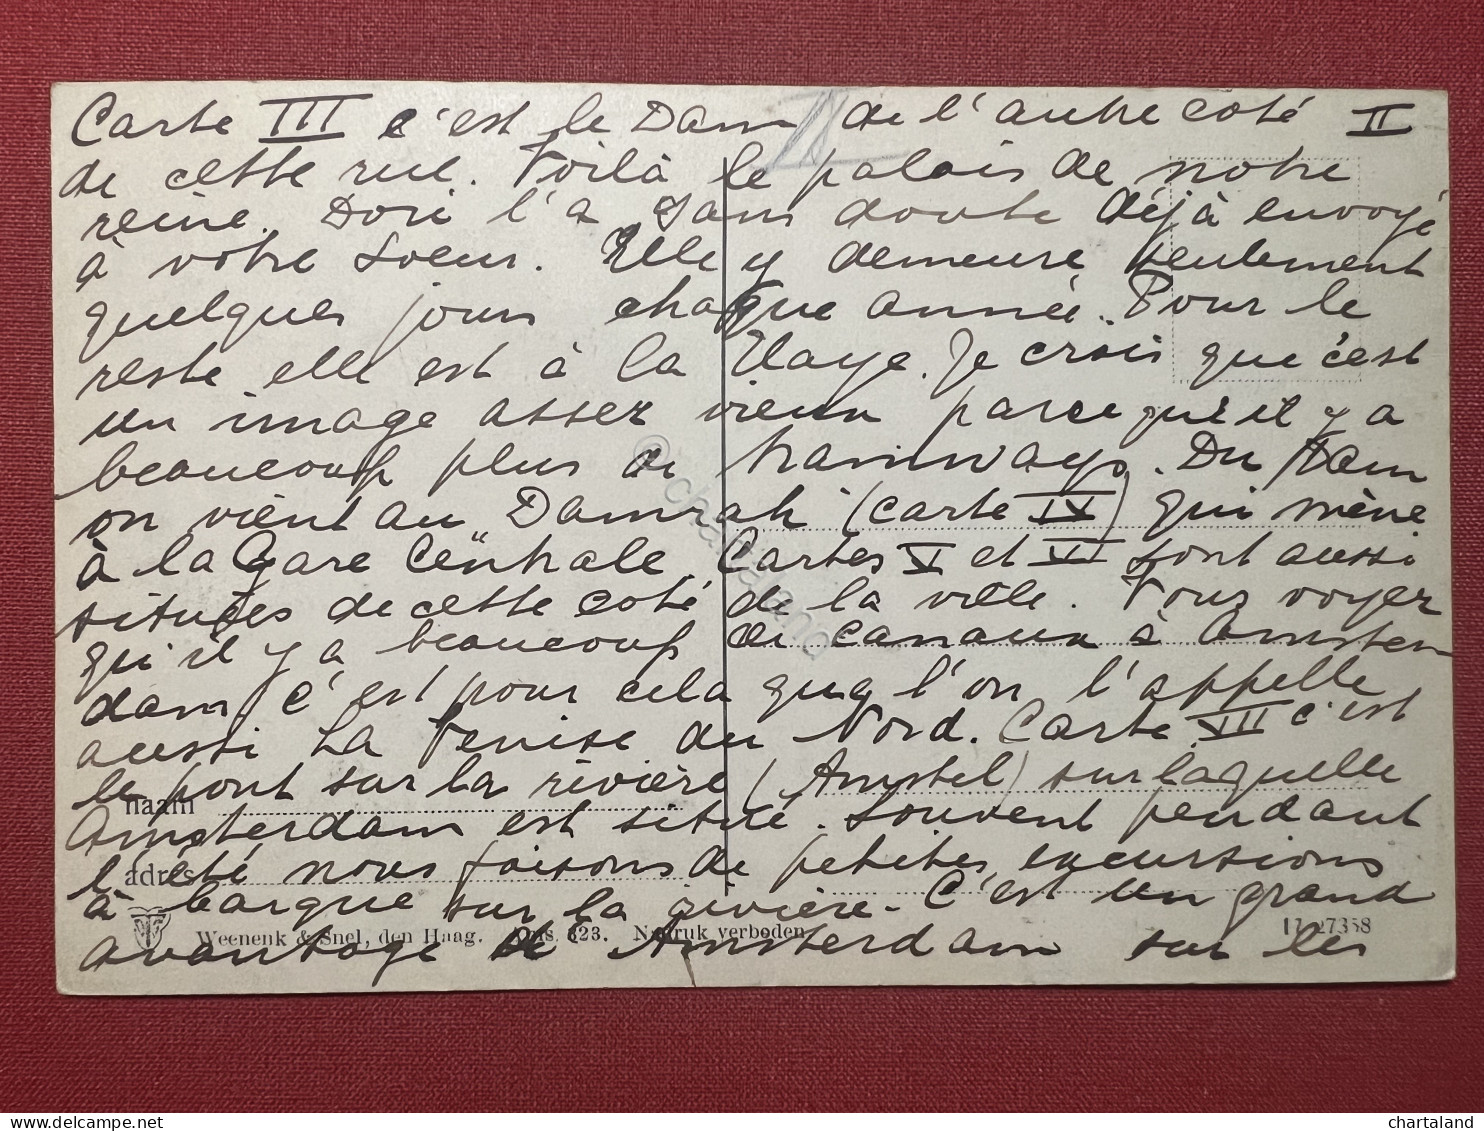 Carte III c'est le Dam de l'autre coté II
II
de cette rue. Voilà le palais de notre
reine. Dori l'a sans doute déjà envoyé
à votre soeur. Elle y demeure seulement
quelques jours chaque année. Pour le
reste elle est à la Haye. Je crois que c'est
un image assez vieux parcequ'il y a
beaucoup plus de tramways. Du Dam
on vient au "Damrak" (carte IV) qui mène
à la Gare Centrale. Cartes V et VI sont aussi
situées de cette coté de la ville. Vous voyez
qu'il y a beaucoup de canaux à Amster
dam, c'est pour cela que l'on l'appelle
aussi La Venise du Nord. Carte VII c'est
le pont sur la rivière (Amstel) sur laquelle
naam
Amsterdam est situé. Souvent pendant
l'été nous faisons de petites excursions
adres
à barque sur la rivière. C'est un grand
Weenenk & Snel, den Haag. Ams. 323. Nadruk verboden 17 27358
avantage de Amsterdam sur les
© chartaland
chartaland